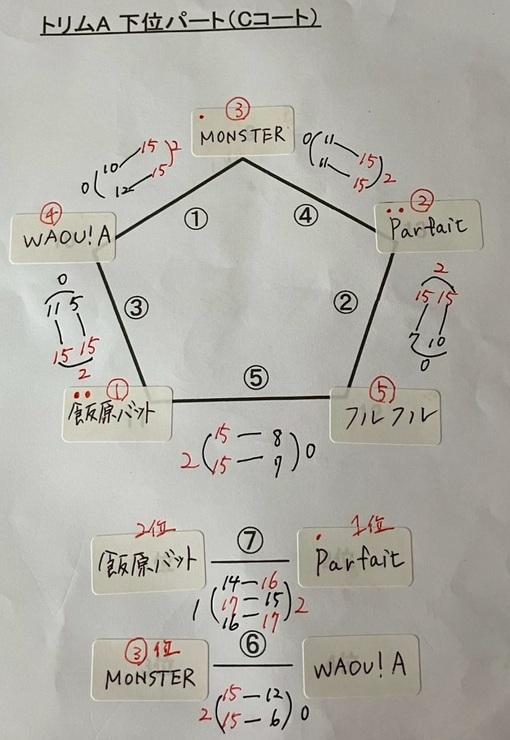 トリムA 下位パート(Cコート)
③
MONSTER
0(10—15)2
(12—15)
0(11—15)2
(11—15)
④
WAOU!A
②
Parfait
①
④
0
11 5
15 15
2
③
②
2
15 15
7 10
0
①
飯原バット
⑤
⑤
フルフル
2(15—8)0
(15—9)
2位
飯原バット
⑦
1位
Parfait
14—16
1(17—15)2
16—17
③位
MONSTER
⑥
WAOU!A
2(15—12)0
(15—6)